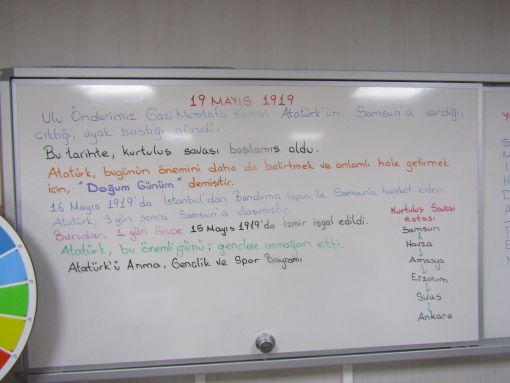 19 MAYIS 1919
Ulu Önderimiz Gazi Mustafa Kemal Atatürk'ün Samsun'a vardığı,
çıktığı, ayak bastığı gündür.
Bu tarihte, kurtuluş savaşı başlamış oldu.
Atatürk, bugünün önemini daha da belirtmek ve anlamlı hale getirmek
için, "Doğum Günüm" demiştir.
16 Mayıs 1919'da İstanbul'dan Bandırma Vapuru ile Samsun'a hareket eden
Atatürk, 3 gün sonra Samsun'a ulaşmıştır.
Bundan 1 gün önce 15 Mayıs 1919'da İzmir işgal edildi.
Atatürk, bu önemli günü; gençlere armağan etti.
Atatürk'ü Anma, Gençlik ve Spor Bayramı
Kurtuluş Savaşı
Rotası
Samsun
↓
Havza
↓
Amasya
↓
Erzurum
↓
Sivas
↓
Ankara